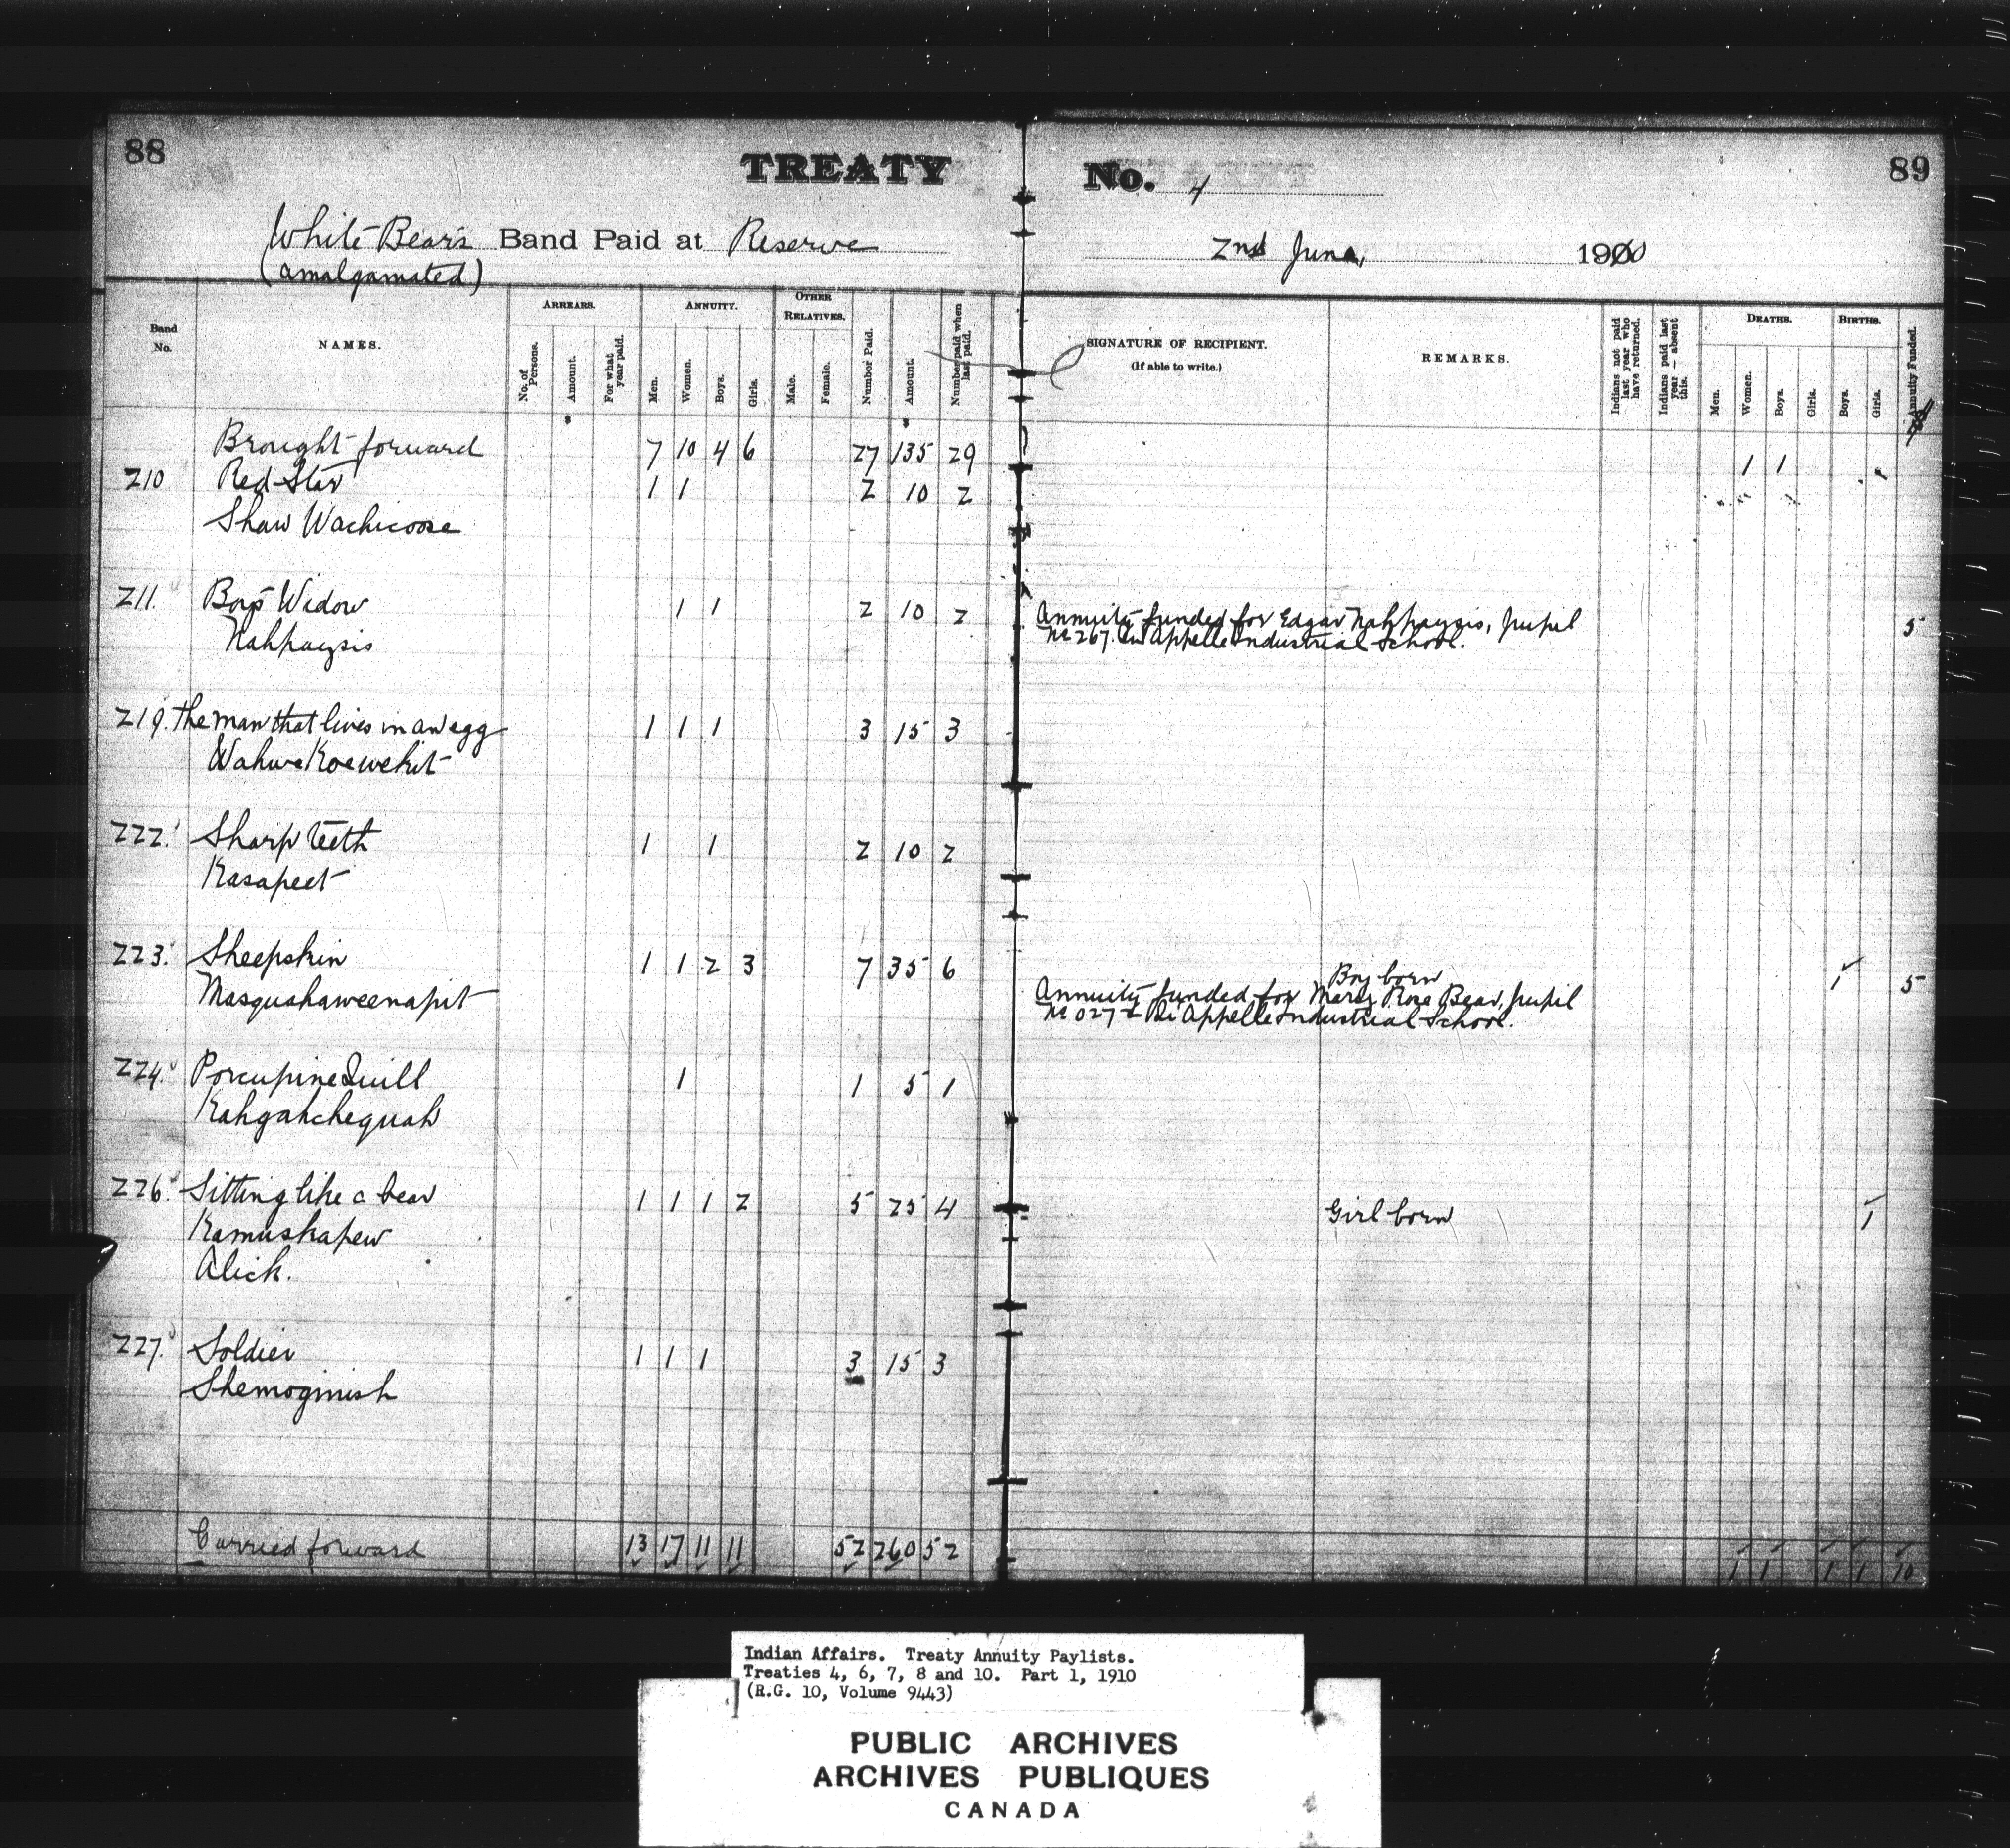 88
TREATY
No. 4
89
White Bear's Band Paid at Reserve
2nd June, 1910
(amalgamated)
Band No.
NAMES.
ARREARS.
No. of Persons.
Amount.
For what year paid.
ANNUITY.
Men.
Women.
Boys.
Girls.
OTHER RELATIVES.
Male.
Female.
Number Paid.
Amount.
Number paid when last paid.
SIGNATURE OF RECIPIENT.
(If able to write.)
REMARKS.
Indians not paid last year who have returned.
Indians paid last year — absent this.
DEATHS.
Men.
Women.
Boys.
Girls.
BIRTHS.
Boys.
Girls.
Annuity Funded.
Brought forward 7 10 4 6 27 135 29 1 1
210 Red Star 1 1 2 10 2
Shaw Wachicoose
211. Boy's Widow 1 1 2 10 2 Annuity funded for Edgar Nahpaysis, pupil 5
Nahpaysis No 267. Qu'Appelle Industrial School.
219. The man that lives in an egg 1 1 1 3 15 3
Wahwe Koewekit
222. Sharp teeth 1 1 2 10 2
Kasapeet
223. Sheepskin 1 1 2 3 7 35 6 Boy born 1 5
Masquahaweenapit Annuity funded for Mary Rose Bear, pupil
No 027 - Qu'Appelle Industrial School.
224. Porcupine Quill 1 1 5 1
Kahgahchequah
226. Sitting like a bear 1 1 1 2 5 25 4 Girl born 1
Kamuskapew
Alick.
227. Soldier 1 1 1 3 15 3
Shemoginish
Carried forward 13 17 11 11 52 260 52 1 1 1 1 10
Indian Affairs. Treaty Annuity Paylists.
Treaties 4, 6, 7, 8 and 10. Part 1, 1910
(R.G. 10, Volume 9443)
PUBLIC ARCHIVES
ARCHIVES PUBLIQUES
CANADA